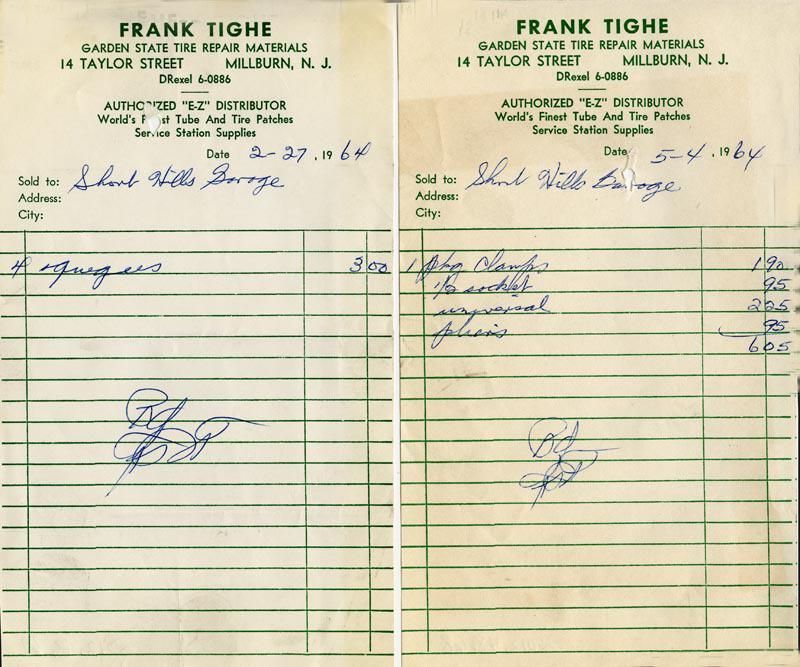 FRANK TIGHE
GARDEN STATE TIRE REPAIR MATERIALS
14 TAYLOR STREET MILLBURN, N. J.
DRexel 6-0886
AUTHORIZED "E-Z" DISTRIBUTOR
World's Finest Tube And Tire Patches
Service Station Supplies
Date 2-27, 1964
Sold to: Short Hills Garage
Address:
City:
4 squegees 3 00
FRANK TIGHE
GARDEN STATE TIRE REPAIR MATERIALS
14 TAYLOR STREET MILLBURN, N. J.
DRexel 6-0886
AUTHORIZED "E-Z" DISTRIBUTOR
World's Finest Tube And Tire Patches
Service Station Supplies
Date 5-4, 1964
Sold to: Short Hills Garage
Address:
City:
1 pkg Clamps 1 90
1/2 socket 95
universal 2 25
pliers 95
6 05